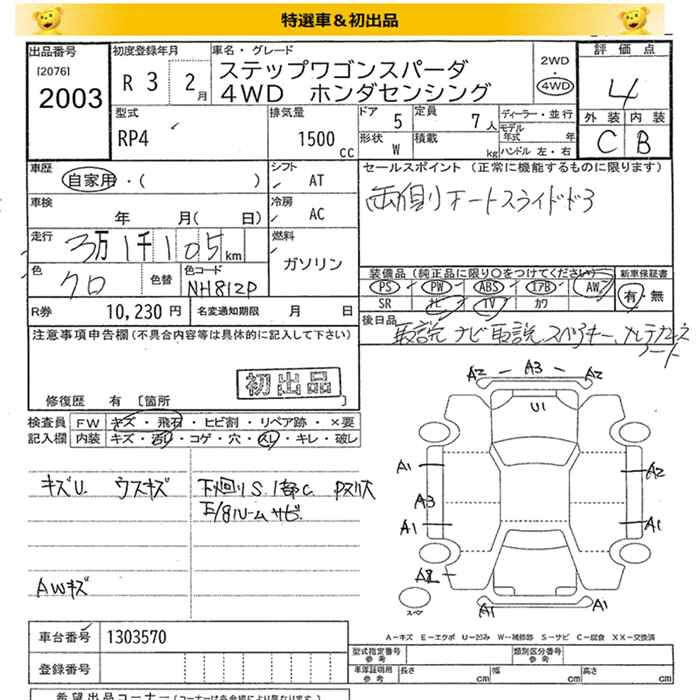 特選車＆初出品
出品番号 初度登録年月 車名・グレード 評価点
[2076] R 3 2月 ステップワゴンスパーダ 2WD 4
2003 4WD ホンダセンシング 4WD
型式 排気量 ドア 5 定員 7人 ディーラー・並行 外装 内装
RP4 1500cc 形状 W 積載 kg モデル年式 年 C B
ハンドル 左・右
車歴 シフト セールスポイント (正常に機能するものに限ります)
自家用・( ) AT 両側オートスライドドア
車検 年 月(日) 冷房 AC
走行 3万1千105km 燃料
色 クロ 色替 色コード NH812P ガソリン
装備品(純正品に限り○をつけてください) 新車保証書
PS PW ABS エアB AW 有・無
SR ナビ TV カワ
R券 10,230円 名変通知期限 月 日 後日品
取説 ナビ取説 スペアキー
注意事項申告欄(不具合内容等は具体的に記入して下さい)
初出品
修復歴 有 [箇所
検査員 FW キズ・飛石・ヒビ割・リペア跡・×要
記入欄 内装 キズ・汚レ・コゲ・穴・スレ・キレ・破レ
キズU ウスキズ 下廻りS.1部C.
ルームサビ
AWキズ
A2 A3 A2
U1
A1 A2
A3
A1 A1
A2
スペア
A1 A1
A-キズ E-エクボ U-凹み W-補修跡 S-サビ C-腐食 XX-交換済
車台番号 1303570
型式指定番号 参考 類別区分番号 参考
登録番号 車庫証明用 参考 長さ cm 幅 cm 高さ cm
希望出品コーナー